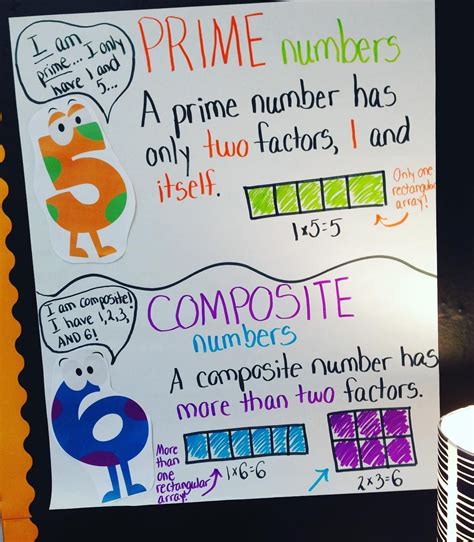 I am
prime... I only
have 1 and
5...
PRIME numbers
A prime number has
only two factors, 1 and
itself.
Only one
rectangular
array!
1x5=5
I am composite!
I have 1,2,3,
AND 6!
COMPOSITE
numbers
A composite number has
more than two factors.
More
than
one
rectangular
array!
1x6=6
2x3=6
5
6